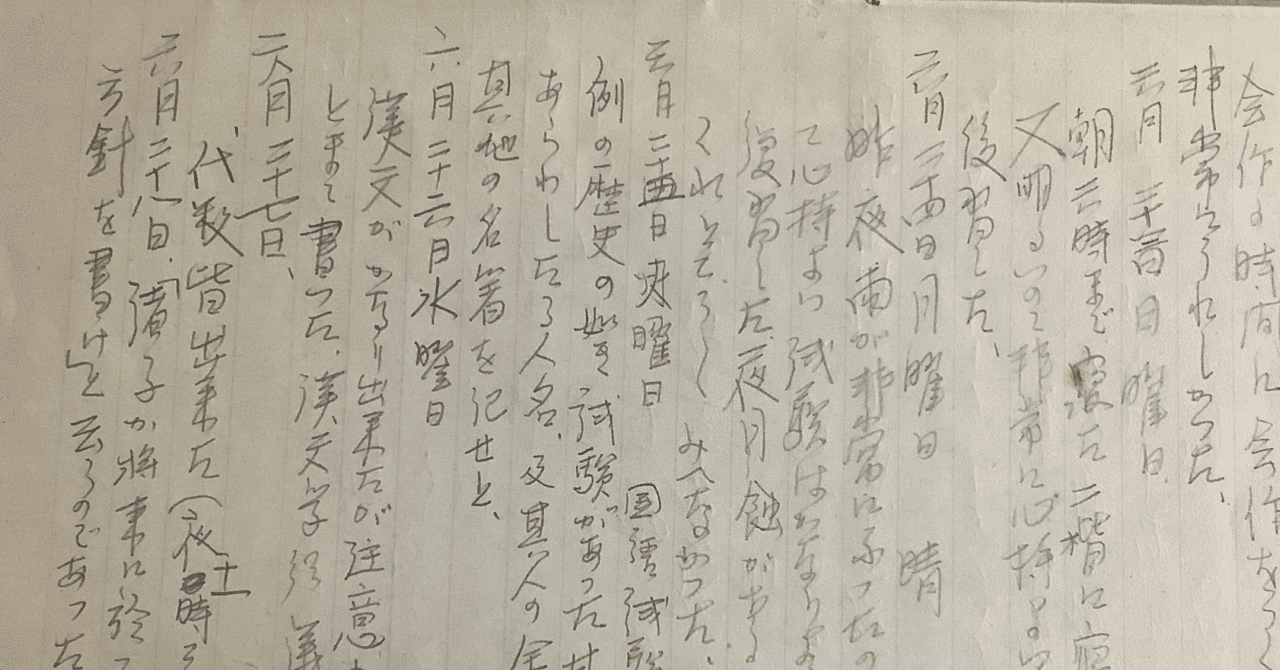 会作の時間に会作をつく
非常にうれしかった、
六月二十三日日曜日、
朝六時まで寝た二階に寝
又明るいので非常に心持よい
復習した、
六月二十四日月曜日 晴
昨夜雨が非常にふったの
で心持よい試験はかなりよ
復習した、夜月蝕がある
くれてそろ〳〵みへなかった、
六月二十五日火曜日 国語試験
例の歴史の如き試験があった
あらわしたる人名、及其人の全
真他の名著を記せと、
六月二十六日水曜日
漢文がかなり出来たが注意
とまで書った、漢文学 講
六月二十七日、
代数皆出来た（夜十時
六月二十八日、「諸子が将来に於
方針を書け」と云うのであった